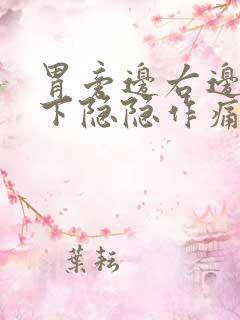 胃旁邊右邊
下隐隐作痛
葉耘